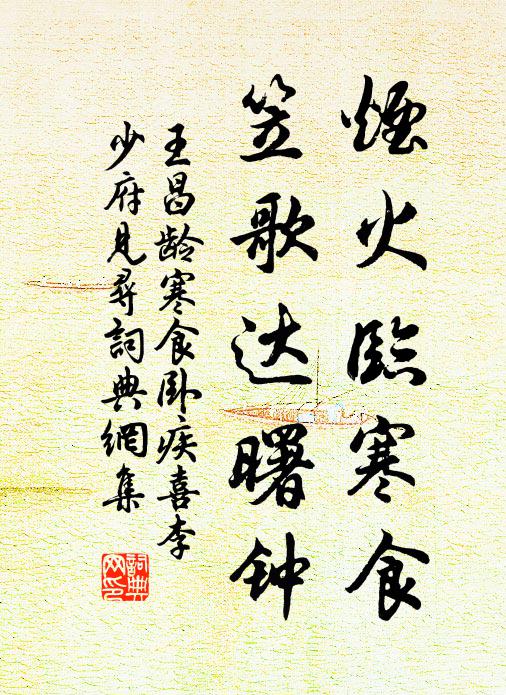 煙火臨寒食
笠歌达曙钟
王昌龄寒食卧疾喜李
少府见尋詞典網集
詞典
网印